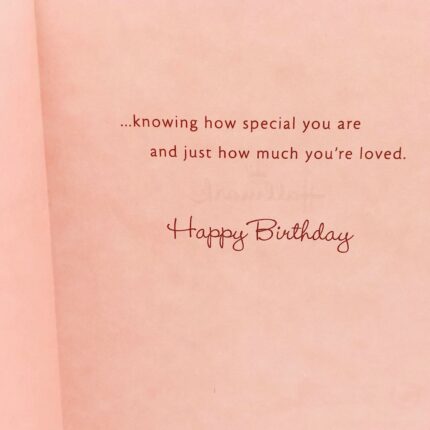 ...knowing how special you are
and just how much you're loved.
Hallmark
Happy Birthday